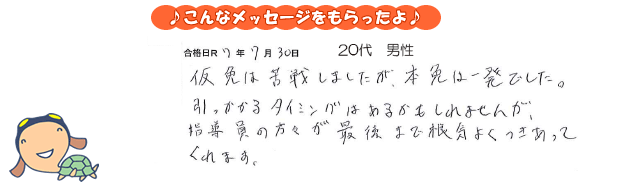 ♪こんなメッセージをもらったよ♪
合格日R 7 年 7 月 30日 20代 男性
仮免は苦戦しましたが、本免は一発でした。
引っかかるタイミングはあるかもしれませんが、
指導員の方々が最後まで根気よくつきあって
くれます。